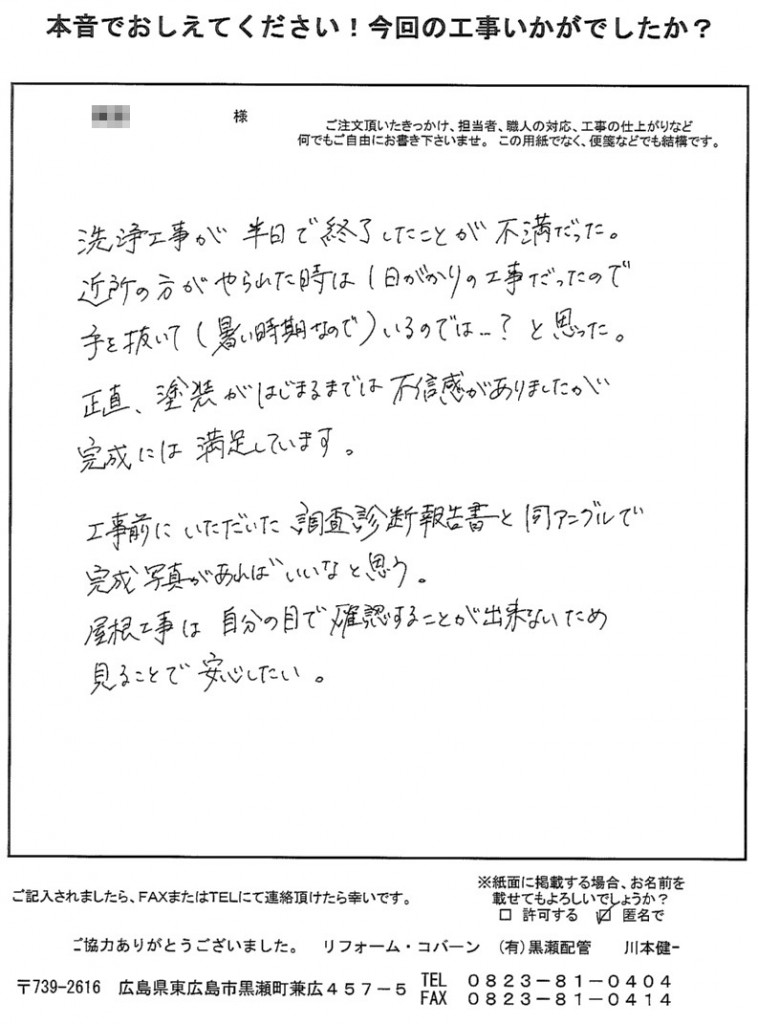 本音でおしえてください！今回の工事いかがでしたか？
様
ご注文頂いたきっかけ、担当者、職人の対応、工事の仕上がりなど
何でもご自由にお書き下さいませ。この用紙でなく、便箋などでも結構です。
洗浄工事が 半日で終了したことが 不満だった。
近所の方がやられた時は1日がかりの工事だったので
手を抜いて(暑い時期なので)いるのでは…？と思った。
正直、塗装がはじまるまでは不信感がありましたが
完成には満足しています。
工事前にいただいた 調査診断報告書と同アングルで
完成写真があればいいなと思う。
屋根工事は 自分の目で確認することが出来ないため
見ることで安心したい。
ご記入されましたら、FAXまたはTELにて連絡頂けたら幸いです。
※紙面に掲載する場合、お名前を
載せてもよろしいでしょうか？
□ 許可する ☑ 匿名で
ご協力ありがとうございました。 リフォーム・コバーン (有)黒瀬配管 川本健一
〒739-2616 広島県東広島市黒瀬町兼広４５７－５ TEL ０８２３－８１－０４０４
FAX ０８２３－８１－０４１４